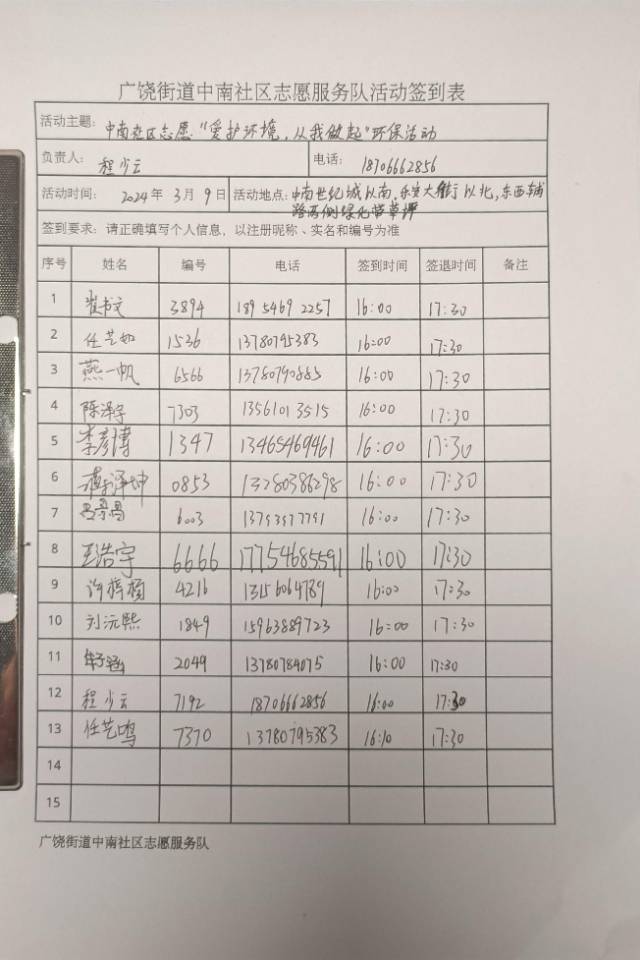 广饶街道中南社区志愿服务队活动签到表
活动主题: 中南社区志愿"爱护环境,从我做起"环保活动
负责人: 程少云 电话: 18706662856
活动时间: 2024年3月9日 活动地点: 中南世纪城以南,乐安大街以北,东西辅
路两侧绿化带草坪
签到要求: 请正确填写个人信息, 以注册昵称、实名和编号为准
序号 姓名 编号 电话 签到时间 签退时间 备注
1 崔书文 3894 189 5469 2257 16:00 17:30
2 任艺如 1536 13780795383 16:00 17:30
3 燕一帆 6566 13780790885 16:00 17:30
4 陈泽宇 7303 1356101 3515 16:00 17:30
5 李彦博 1347 13465469461 16:00 17:30
6 泽坤 0853 13280386298 16:00 17:30
7 6003 16:00 17:30
8 王浩宇 6666 17754685591 16:00 17:30
9 许梓 4216 13156064789 16:00 17:30
10 刘沅熙 1849 15963889723 16:00 17:30
11 2049 13780784075 16:00 17:30
12 程少云 7192 18706662856 16:00 17:30
13 任艺鸣 7370 13780795383 16:10 17:30
14
15
广饶街道中南社区志愿服务队